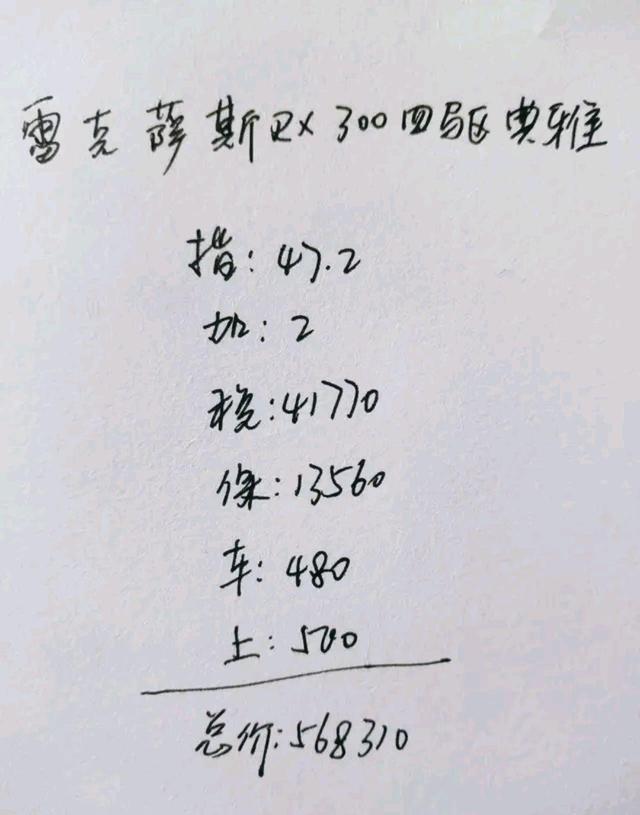 雷克萨斯RX300四驱典雅
指: 47.2
加: 2
税: 41770
保: 13560
车: 480
上: 500
总价: 568310